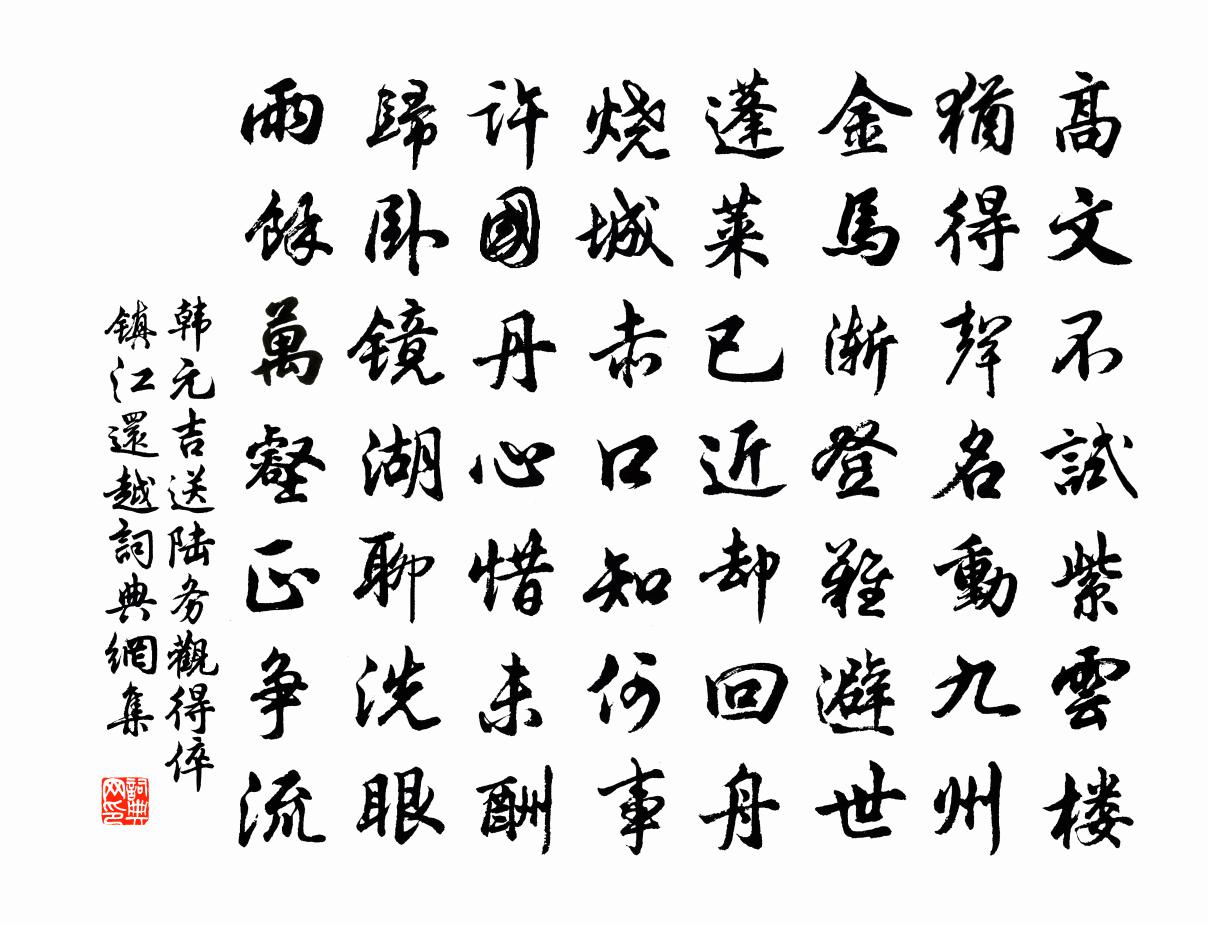 高文不試紫雲楼
猶得聲名動九州
金馬漸登難避世
蓬莱已近却回舟
烧城赤口知何事
許國丹心惜未酬
歸卧镜湖聊洗眼
雨餘萬壑正争流
韩元吉送陆务觀得倅
镇江還越詞典網集
詞典
网印